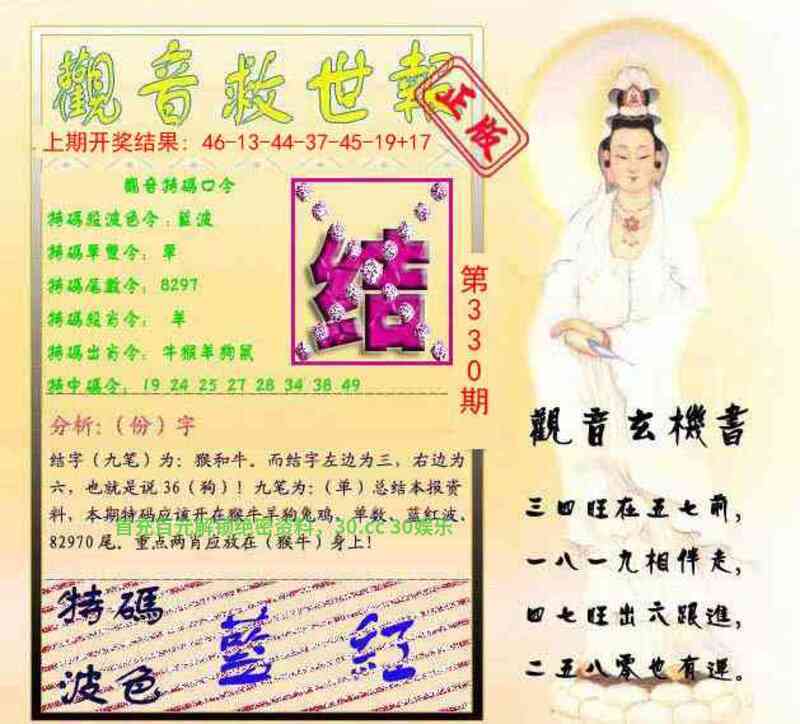 觀音救世報
正版
上期开奖结果：46-13-44-37-45-19+17
觀音特碼口令
特碼段波色令：藍波
特碼單雙令：單
特碼尾數令：8297
特碼段肖令：羊
特碼出肖令：牛猴羊狗鼠
特中碼令：19 24 25 27 28 34 38 49
结
第330期
分析:（份）字
结字（九笔）为：猴和牛。而结字左边为三，右边为
六，也就是说36（狗）！九笔为:（单）总结本报资
料，本期特码应该开在猴牛羊狗兔鸡、单数、蓝红波、
30.cc 30娱乐
82970尾。重点两肖应放在（猴牛）身上！
特碼
波色
藍 紅
觀音玄機書
三四旺在五七前，
一八一九相伴走，
四七旺出六跟進，
二五八零也有運。